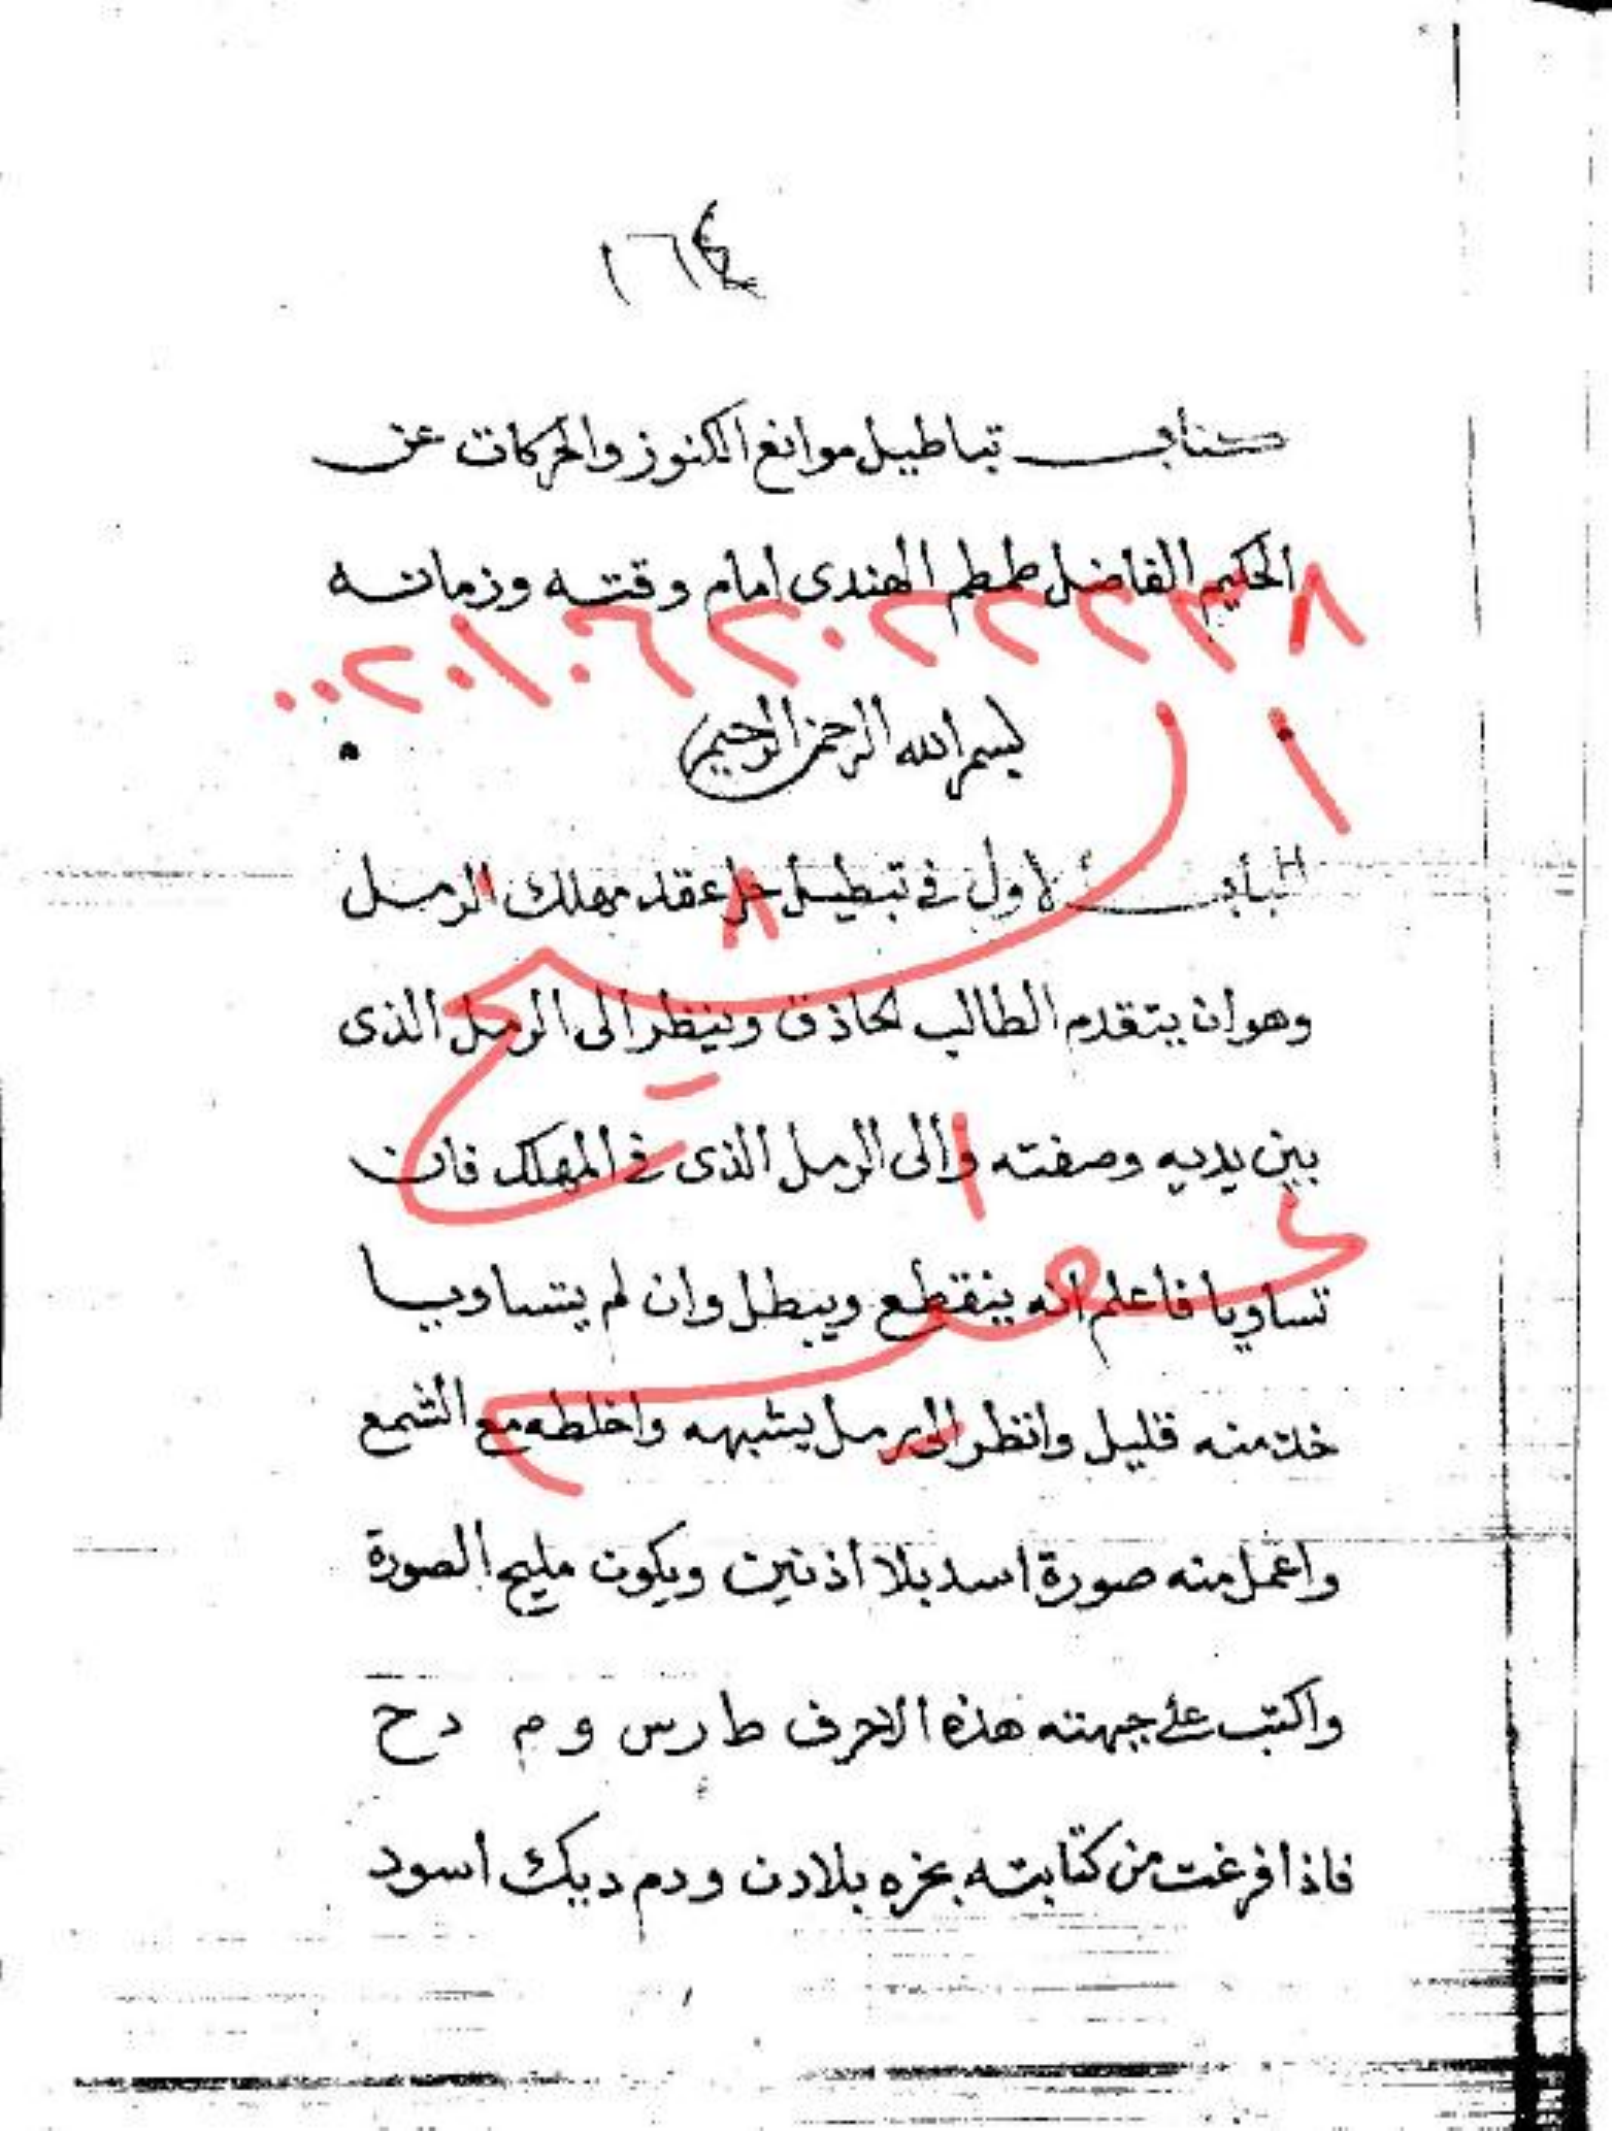 ١٦٤
كتاب تباطيل موانع الكنوز والحركات عن
الحكيم الفاضل طمطم الهندى امام وقته وزمانه
بسم الله الرحمن الرحيم
الباب الاول فى تبطيل حل عقد مهلك الرمل
وهو ان يتقدم الطالب الحاذق وينظر الى الرمل الذى
بين يديه وصفته والى الرمل الذى فى المهلك فان
تساويا فاعلم انه ينقطع ويبطل وان لم يتساويا
خذ منه قليل وانظر الى رمل يشبهه واخلطه مع الشمع
واعمل منه صورة اسد بلا اذنين ويكون مليح الصورة
واكتب على جبهته هذه الاحرف ط ا ر س و م د ح
فاذا فرغت من كتابته بخره بلادن ودم ديك اسود